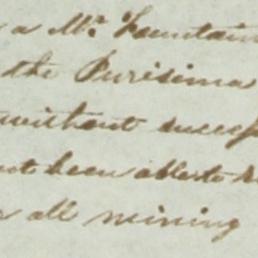 a Mr. Fountain
the Purisima
without success
not been able to
all mining